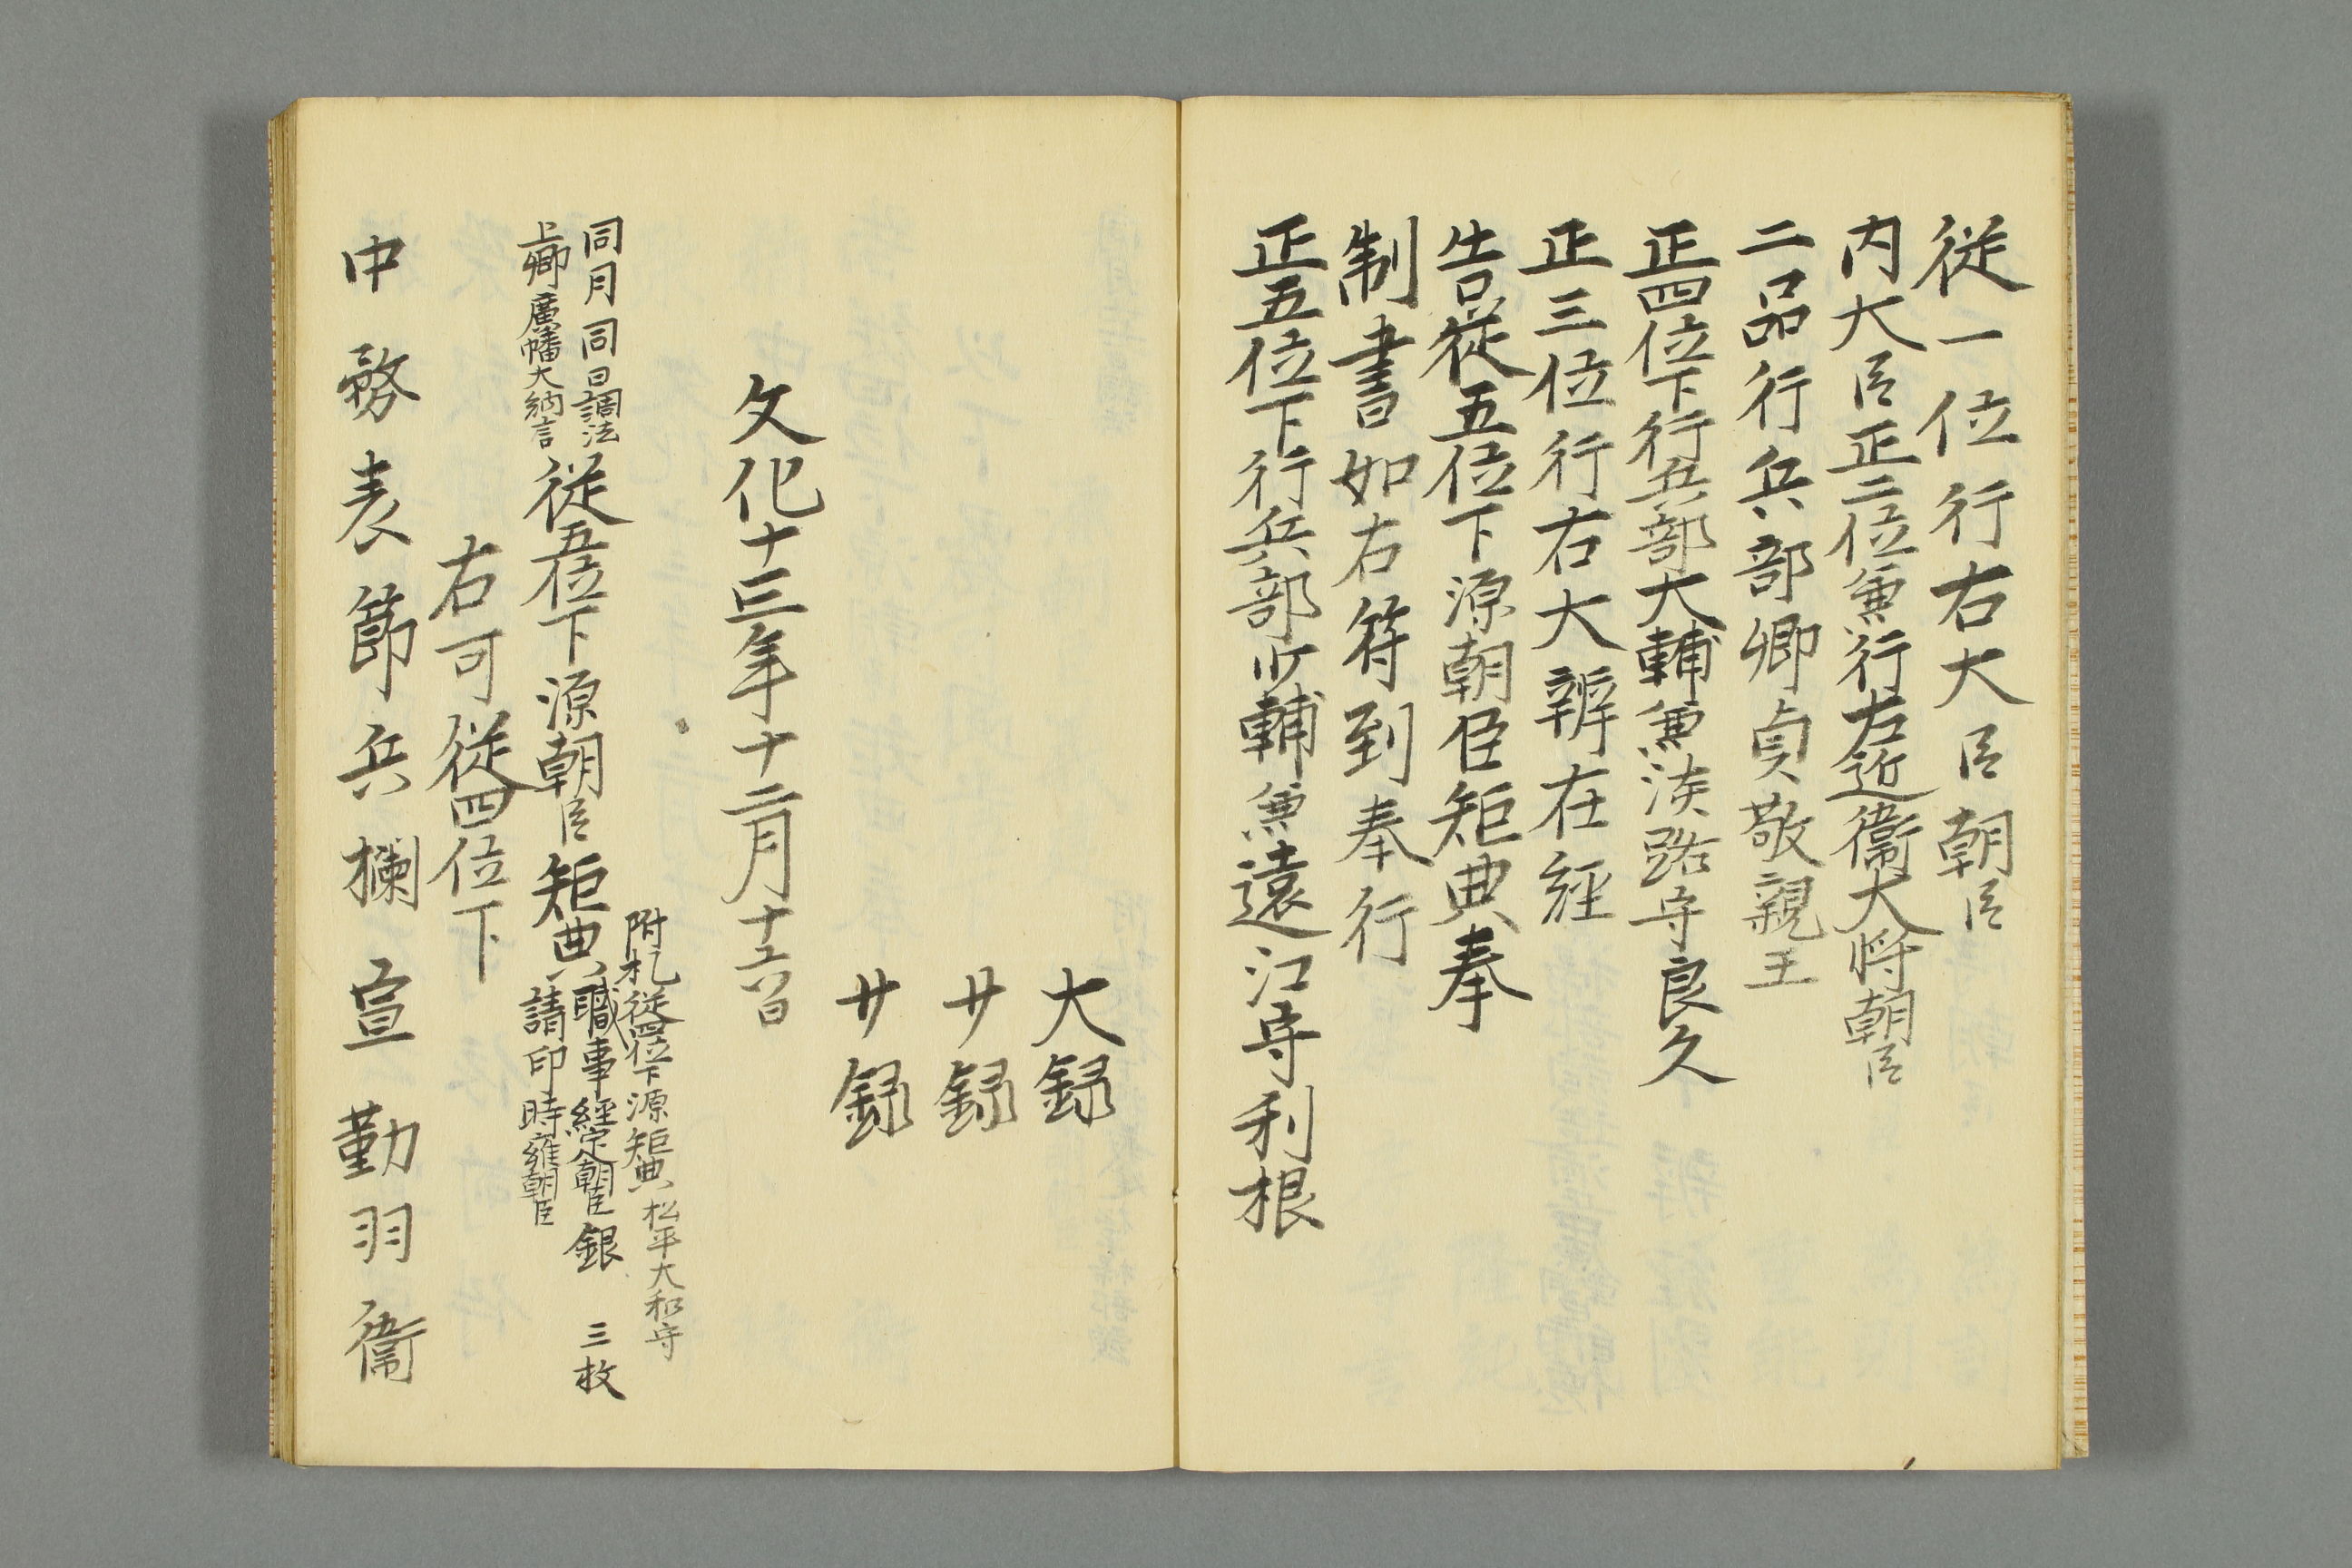 従一位行右大臣朝臣
内大臣正二位兼行右近衛大将朝臣
二品行兵部卿貞敬親王
正四位下行兵部大輔兼淡路守良久
正三位行右大辨在経
告従五位下源朝臣矩典奉
制書如右符到奉行
正五位下行兵部少輔兼遠江守利根
大録
少録
少録
文化十三年十二月十六日
附札従四位下源矩典松平大和守
同月同日調法
上卿廣幡大納言
従五位下源朝臣矩典
職事経定朝臣銀三枚
請印時雍朝臣
右可従四位下
中務表節兵欄宣勤羽衛